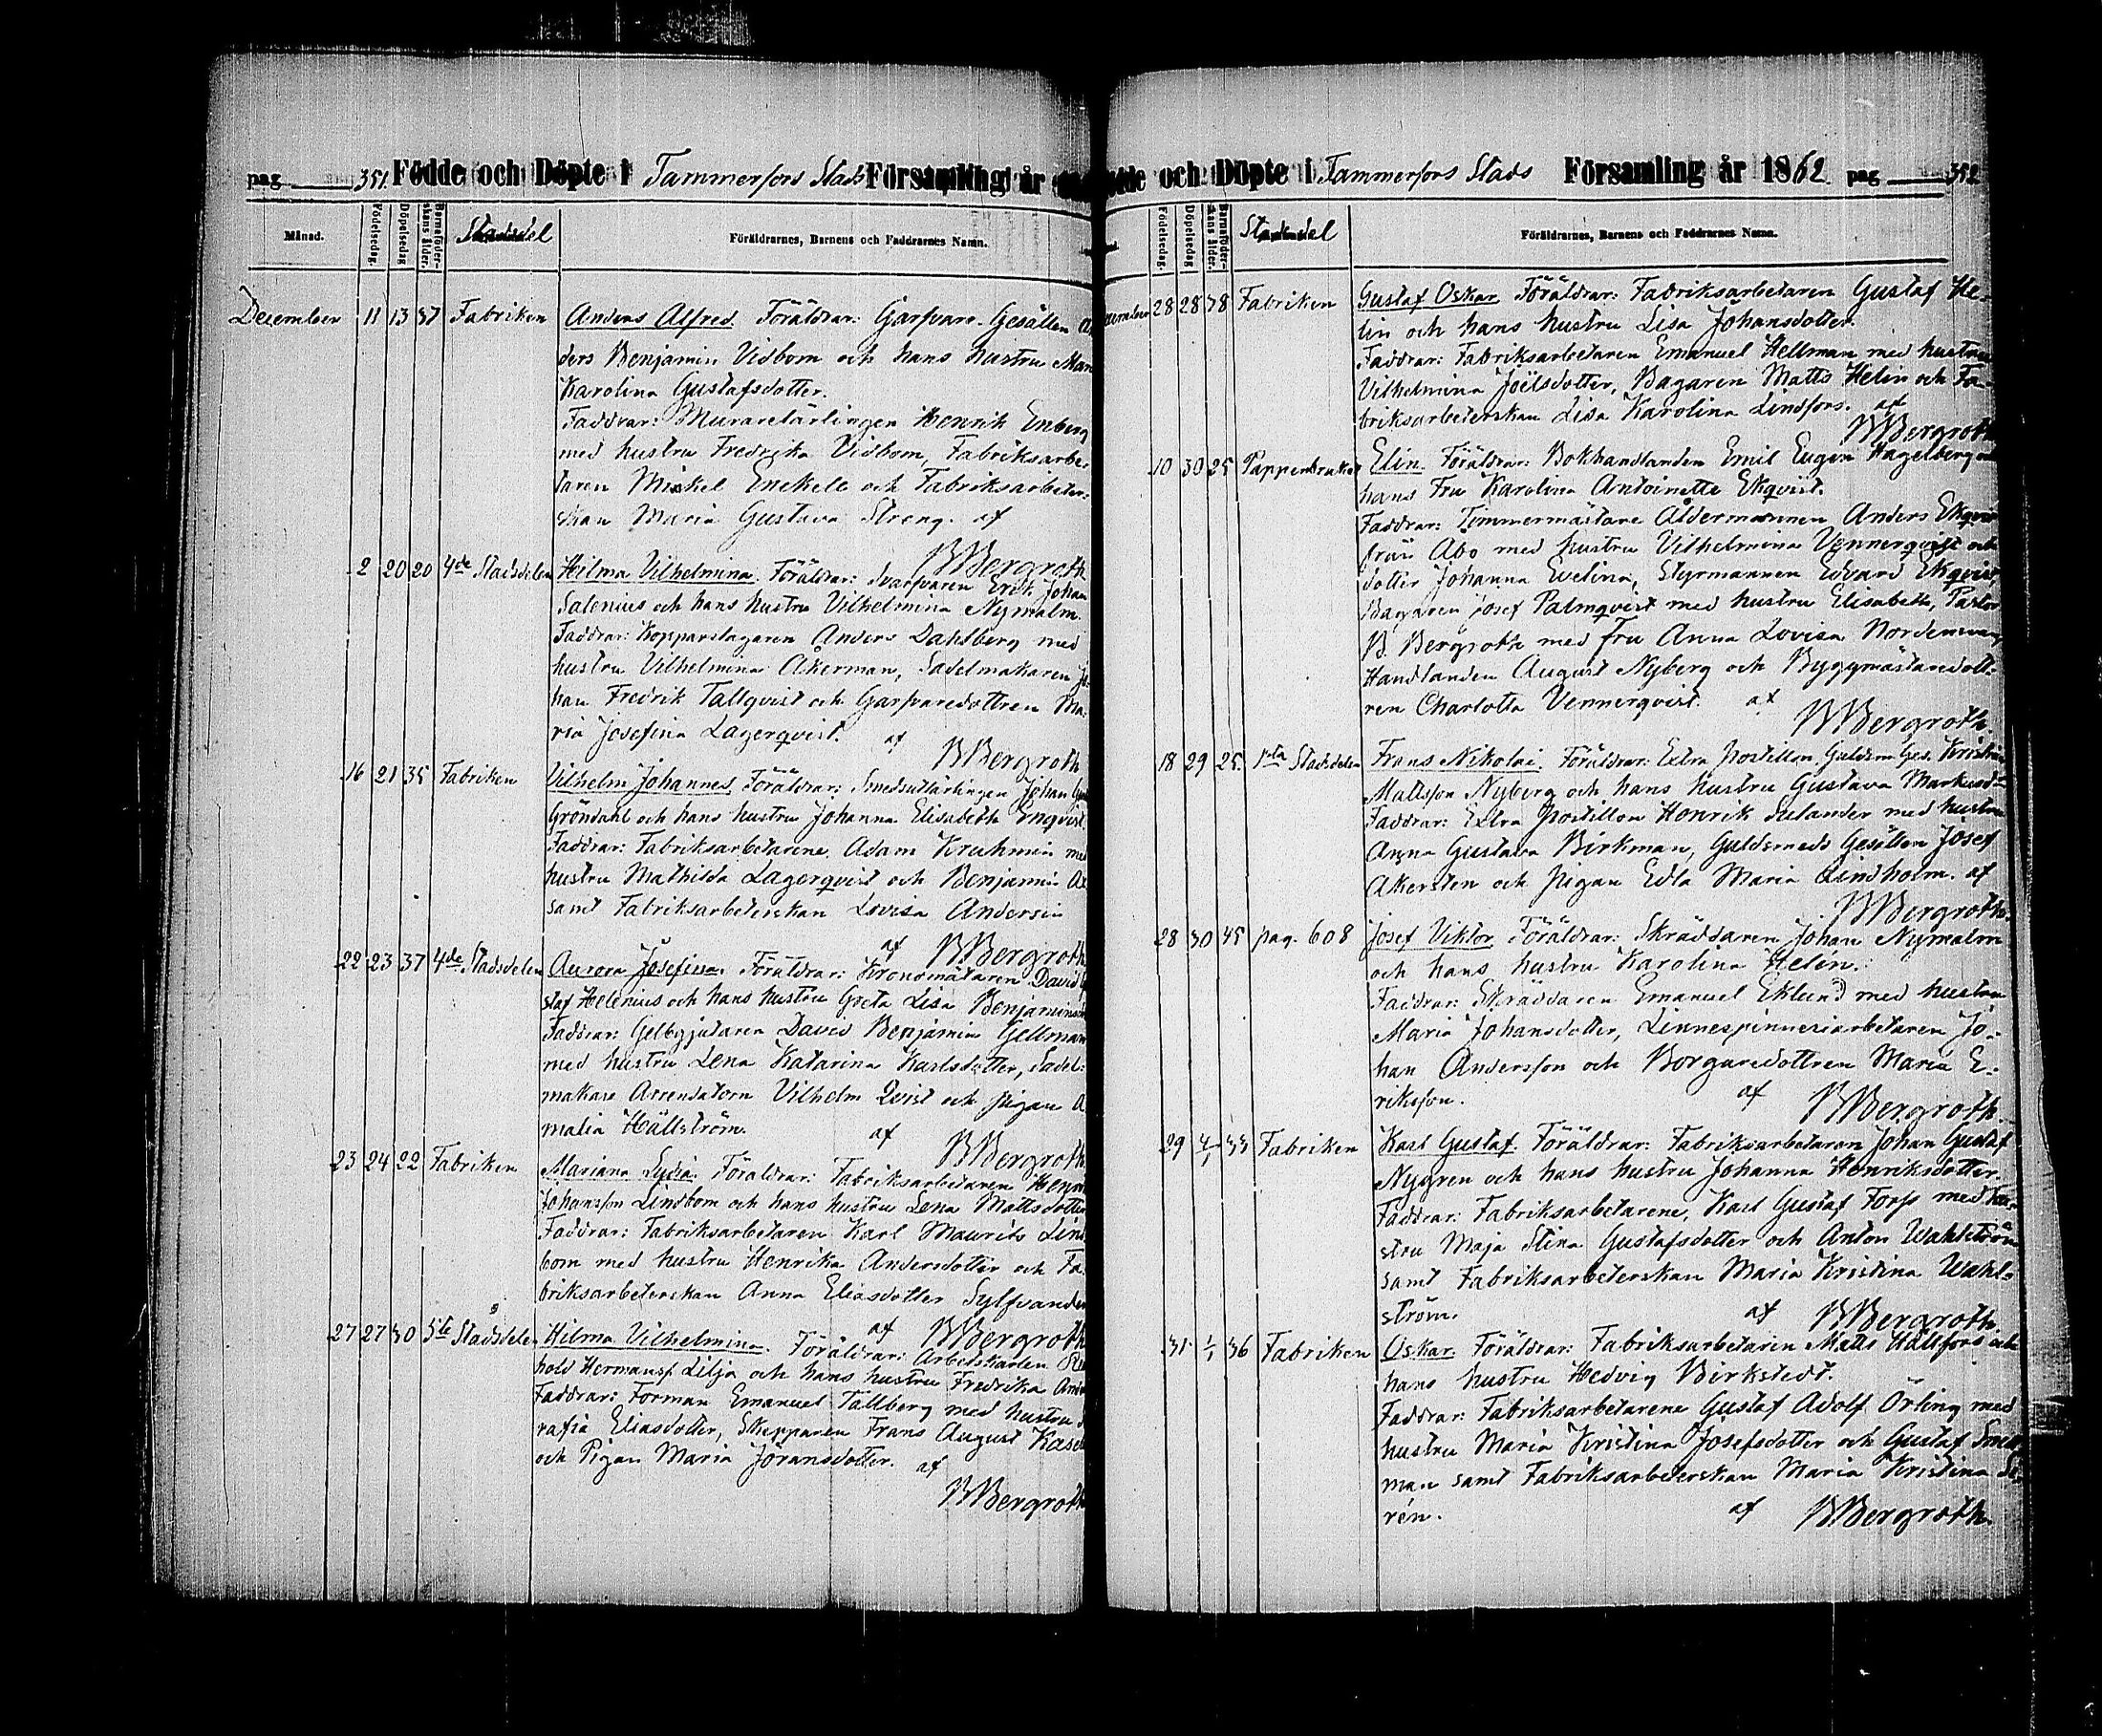 pag 351. Födde och Döpte i Tammerfors Stads Församling år
Månad. Födelsedag. Döpelsedag Barnaföderskans ålder. Stadsdel Föräldrarnes, Barnens och Faddrarnes Namn.
December 11 13 37 Fabriken Anders Alfred. Föräldrar: Garfvare-Gesällen
ders Benjamin Vidbom och hans hustru
Karolina Gustafsdotter.
Faddrar: Murarelärlingen Henrik Enberg
med hustru Fredrika Vidbom, Fabriksarbe-
taren Mickel Enekell och Fabriksarbeter-
skan Maria Gustava Streng. af
BBergroth
2 20 20 4de Stadsdelen Hilma Vilhelmina. Föräldrar: Svarfvaren Erik Johan
Salenius och hans hustru Vilhelmina Nymalm.
Faddrar: Kopparslagaren Anders Dahlberg med
hustru Vilhelmina Åkerman, Sadelmakaren Jo-
han Fredrik Tallqvist och Garfvaredottren Ma-
ria Josefina Lagerqvist. af BBergroth
16 21 35 Fabriken Vilhelm Johannes. Föräldrar: Smedsutlärlingen Johan
Gröndahl och hans hustru Johanna Elisabeth Enqvist.
Faddrar: Fabriksarbetarene Adam Kruhmin med
hustru Mathilda Lagerqvist och Benjamin
samt Fabriksarbeterskan Lovisa Andersin
af BBergroth
22 23 37 4de Stadsdelen Aurora Josefina. Föräldrar: Kronomätaren David
staf Helenius och hans hustru Greta Lisa
Faddrar: Gelbgjutaren David Benjamin Gellman
med hustru Lena Katarina Karlsdotter, Sadel-
makare Arrendatorn Vilhelm Qvist och pigan A
malia Hällström. af BBergroth
23 24 22 Fabriken Mariana Lydia. Föräldrar: Fabriksarbetaren
Johansson Lindbom och hans hustru Lena Mattsdotter
Faddrar: Fabriksarbetaren Karl Maurits Lind
bom med hustru Henrika Andersdotter och Fa-
briksarbeterskan Anna Eliasdotter Sylfvander
af BBergroth
27 27 30 5te Stadsdelen Hilma Vilhelmina. Föräldrar: Arbetskarlen
hold Hermansf. Lilja och hans hustru Fredrika
Faddrar: Forman Emanuel Tallberg med hustru
rafia Eliasdotter, Skepparen Frans August
och Pigan Maria Jöransdotter. af
BBergroth
och Döpte i Tammerfors Stads Församling år 1862. pag 352
Födelsedag. Döpelsedag Barnaföderskans ålder. Stadsdel Föräldrarnes, Barnens och Faddrarnes Namn.
28 28 38 Fabriken Gustaf Oskar. Föräldrar: Fabriksarbetaren Gustaf He-
lin och hans hustru Lisa Johansdotter.
Faddrar: Fabriksarbetaren Emanuel Hellman med hustru
Vilhelmina Joëlsdotter, Bagaren Matts Helin och Fa-
briksarbeterskan Lisa Karolina Lindfors. af
BBergroth
10 30 25 Pappersbruket Elin. Föräldrar: Bokhandlanden Emil Eugen Hagelberg och
hans Fru Karolina Antoinette Ekqvist.
Faddrar: Timmermästare Åldermannen Anders Ekqvist
från Åbo med hustru Vilhelmina Vennerqvist och
dotter Johanna Evelina, Styrmannen Edvard Ekqvist,
Bagaren Josef Palmqvist med hustru Elisabeth, Pastor
B. Bergroth med Fru Anna Lovisa
Handlanden August Nyberg och Byggmästaredott-
ren Charlotta Vennerqvist. af
BBergroth
18 29 25 1sta Stadsdelen Frans Nikolai. Föräldrar: Extra postillon, Guldsm. Ges.
Mattsson Nyberg och hans hustru Gustava
Faddrar: Extra postillon Henrik Sulander med hustru
Anna Gustava Birkman, Guldsmeds Gesällen Josef
Åkersten och pigan Edla Maria Lindholm. af
BBergroth.
28 30 45 pag. 608 Josef Viktor. Föräldrar: Skräddaren Johan Nymalm
och hans hustru Karolina Helén.
Faddrar: Skräddaren Emanuel Eklund med hustru
Maria Johansdotter, Linnespinneriarbetaren Jo-
han Andersson och Borgaredottren Maria E-
riksson. af BBergroth.
29 4/1 33 Fabriken Karl Gustaf. Föräldrar: Fabriksarbetaren Johan Gustaf
Nygren och hans hustru Johanna Henriksdotter.
Faddrar: Fabriksarbetarene, Karl Gustaf Torp med hu-
stru Maja Stina Gustafsdotter och Anton Wahlström
samt Fabriksarbeterskan Maria Kristina Wahl-
ström. af BBergroth.
31 1/1 36 Fabriken Oskar. Föräldrar: Fabriksarbetaren Matts Hällfors och
hans hustru Hedvig Birkstedt.
Faddrar: Fabriksarbetarene Gustaf Adolf Örling med
hustru Maria Kristina Josefsdotter och Gustaf
man samt Fabriksarbeterskan Maria Kristina
rén. af BBergroth.